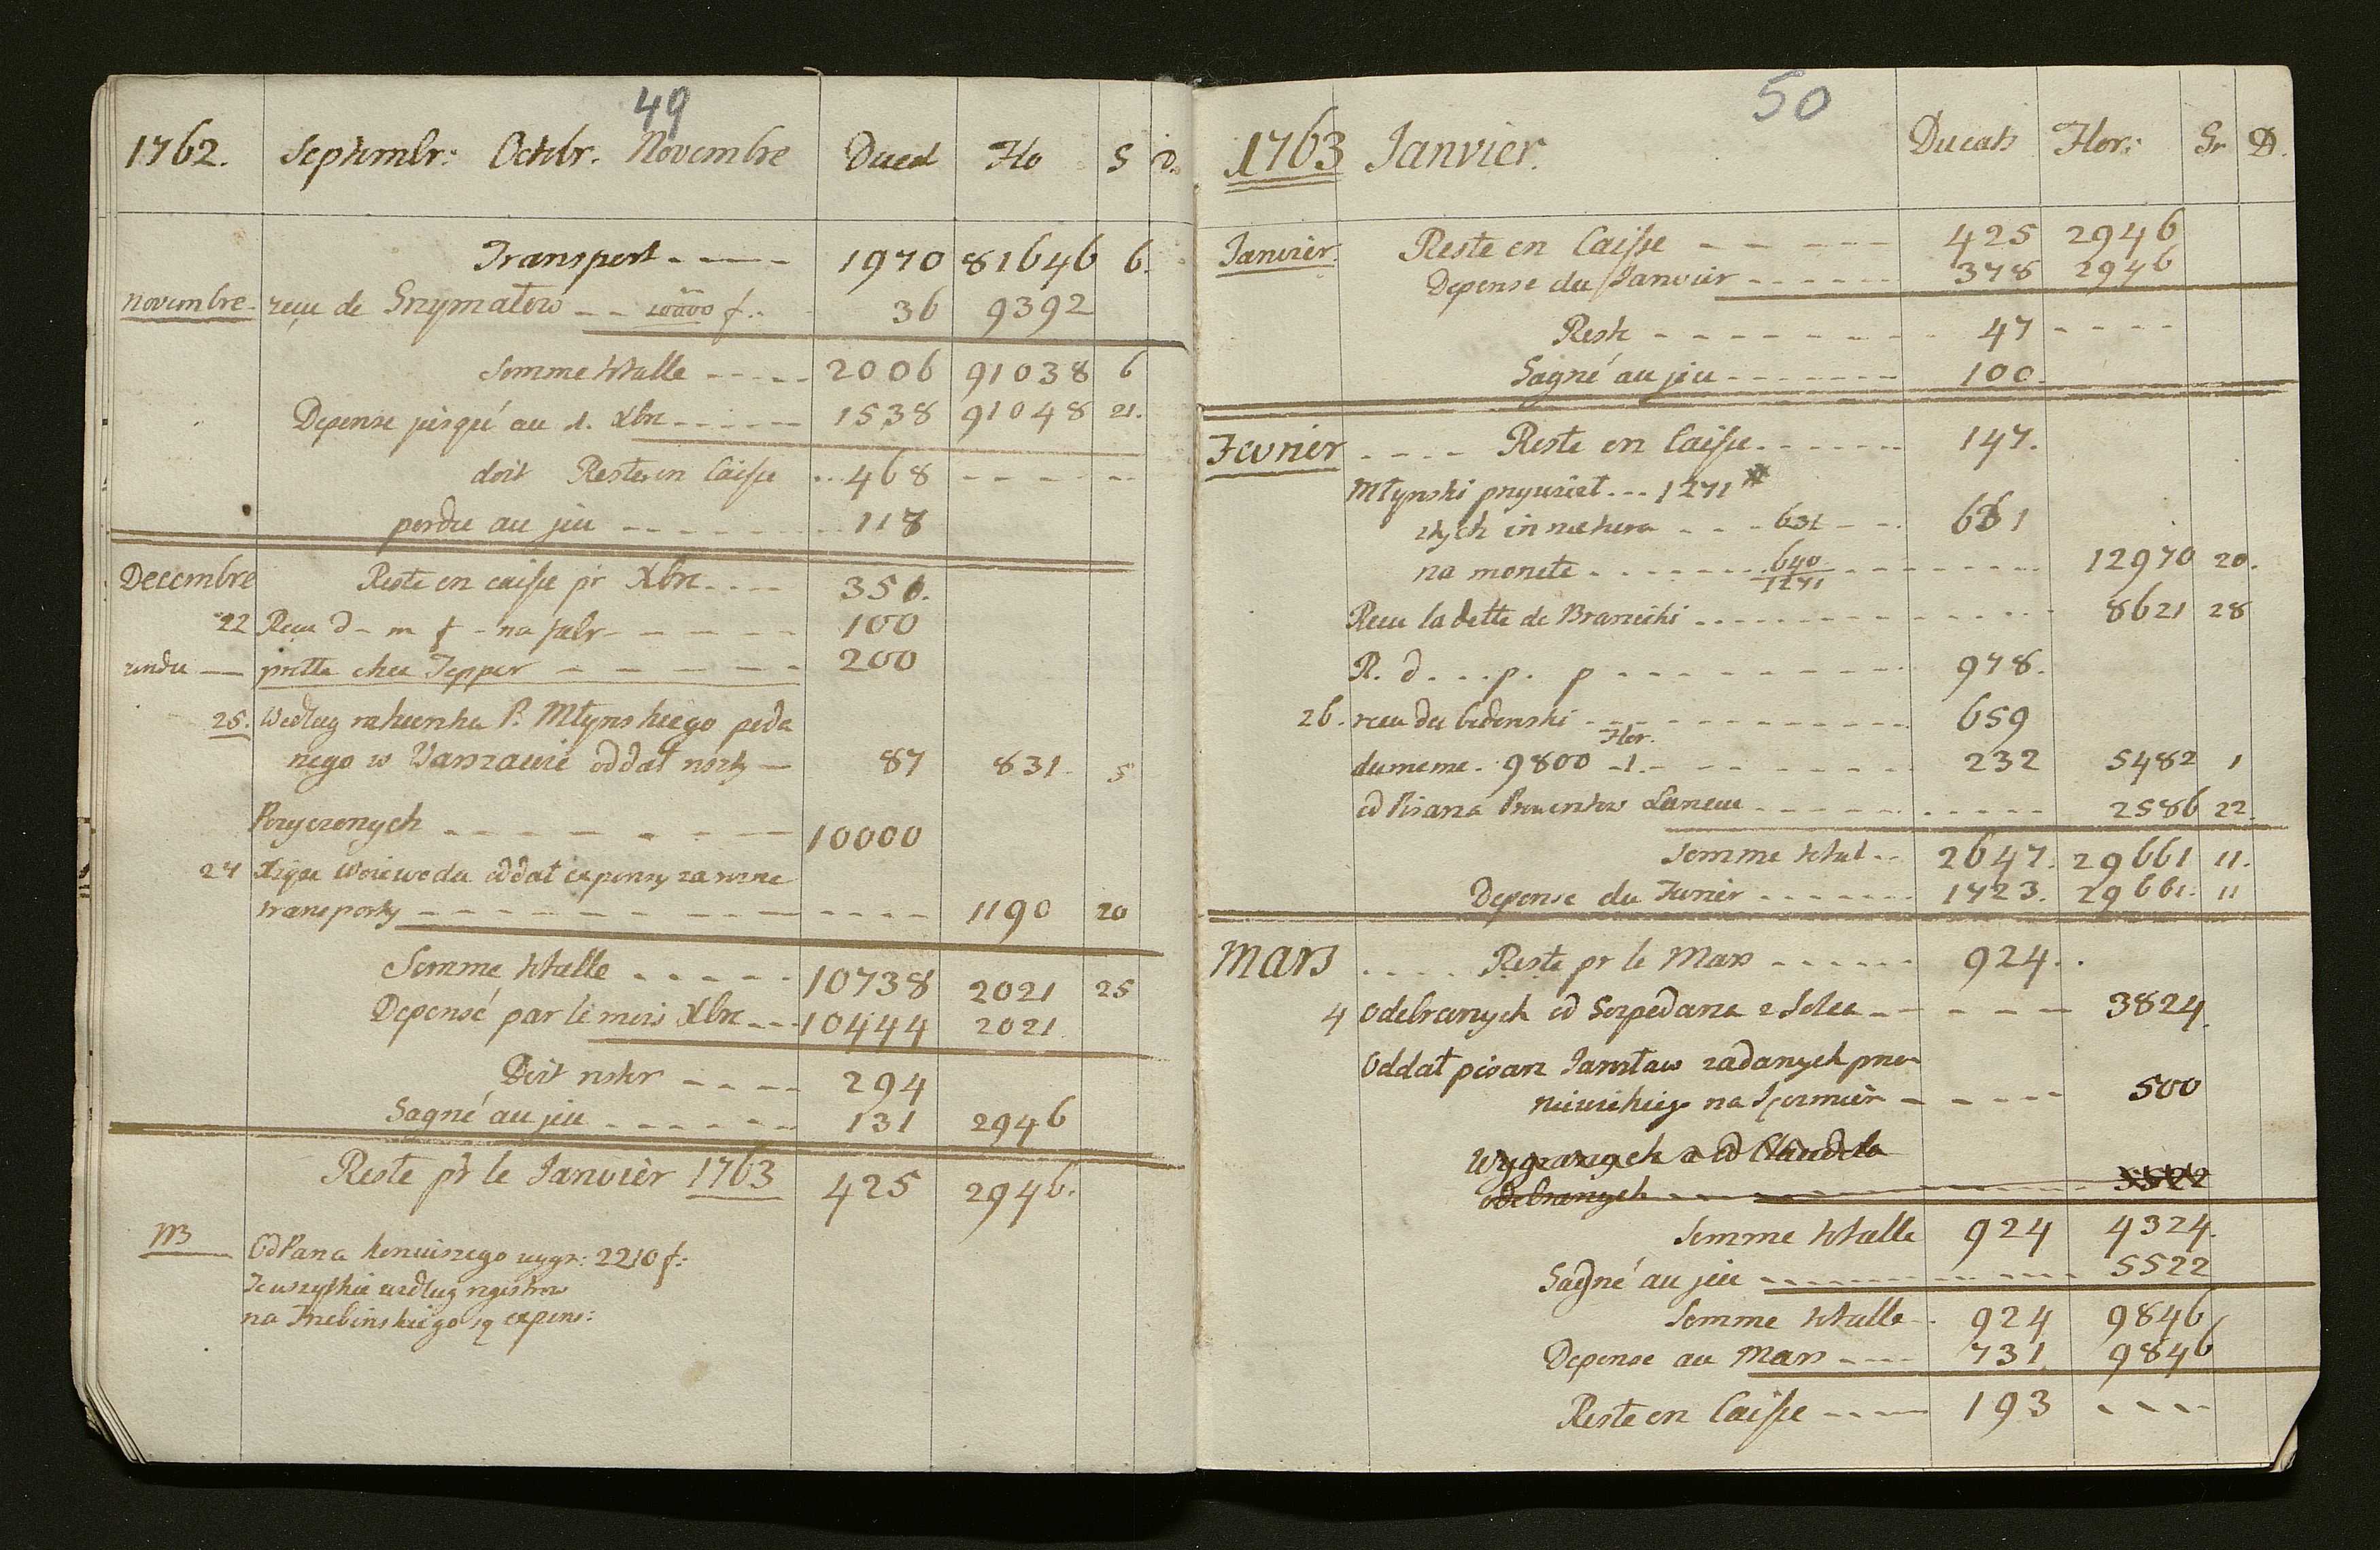 49
1762. Septembr: Octobr. Novembre Ducat Flo S D.
Transport 1970 81646 6.
Novembre. reçu de Grzymałow 10000 f. 36 9392
Somme totalle 2006 91038 6
Depense jusqué au 1. Xbre 1538 91048 21.
doit Reste en Caisse 468
perdu au jeu 118
Decembre Reste en caisse pr Xbre 350.
22 Recu d m f na 100
rendu prette chez Tepper 200
25. Według rachunku P. Młynskiego poda
nego w Warszawie oddał reszty 87 831 5
Pozyczonych 10000
27 Xiąze Woiewoda oddał expensy za rozne
transporty 1190 20
Somme totalle 10738 2021 25
Depensé par le mois Xbre 10444 2021
Doit rester 294
Gagné au jeu 131 2946
Reste pr le Janvièr 1763 425 2946.
NB Od Pana koniuszego wygr: 2210 f:
Te wszystkie według regestrow
na Trebinskiego są expens:
50
1763 Janvièr. Ducats Flor: Gr D.
Janvièr. Reste en Caisse 425 2946
Depense du Janvièr 378 2946
Reste 47
Gagné au jeu 100.
Fevrier Reste en Caisse 147.
Młynski przywiozł 1271 #
z tych in natura 631 631
na monete 640 12970 20.
1271
Recu la dette de Branicki 8621 28
R. d. p. p 978.
26. recu du 659
du meme. 9800 Flor. 232 5482 1
od Pisarza Prowentow 2586 22.
Somme total 2647. 29661 11.
Depense du Fevrièr 1723. 29661. 11
Mars Reste pr le Mars 924.
4 Odebranych od Gospodarza z Solca 3824.
Oddał pisarz Jarosław zadanych przez
na 500
Wygranych a od Claudela
odebranych 5522
Somme totalle 924 4324.
Gagné au jeu 5522
Somme totalle 924 9846
Depense au Mars 731 9846
Reste en Caisse 193